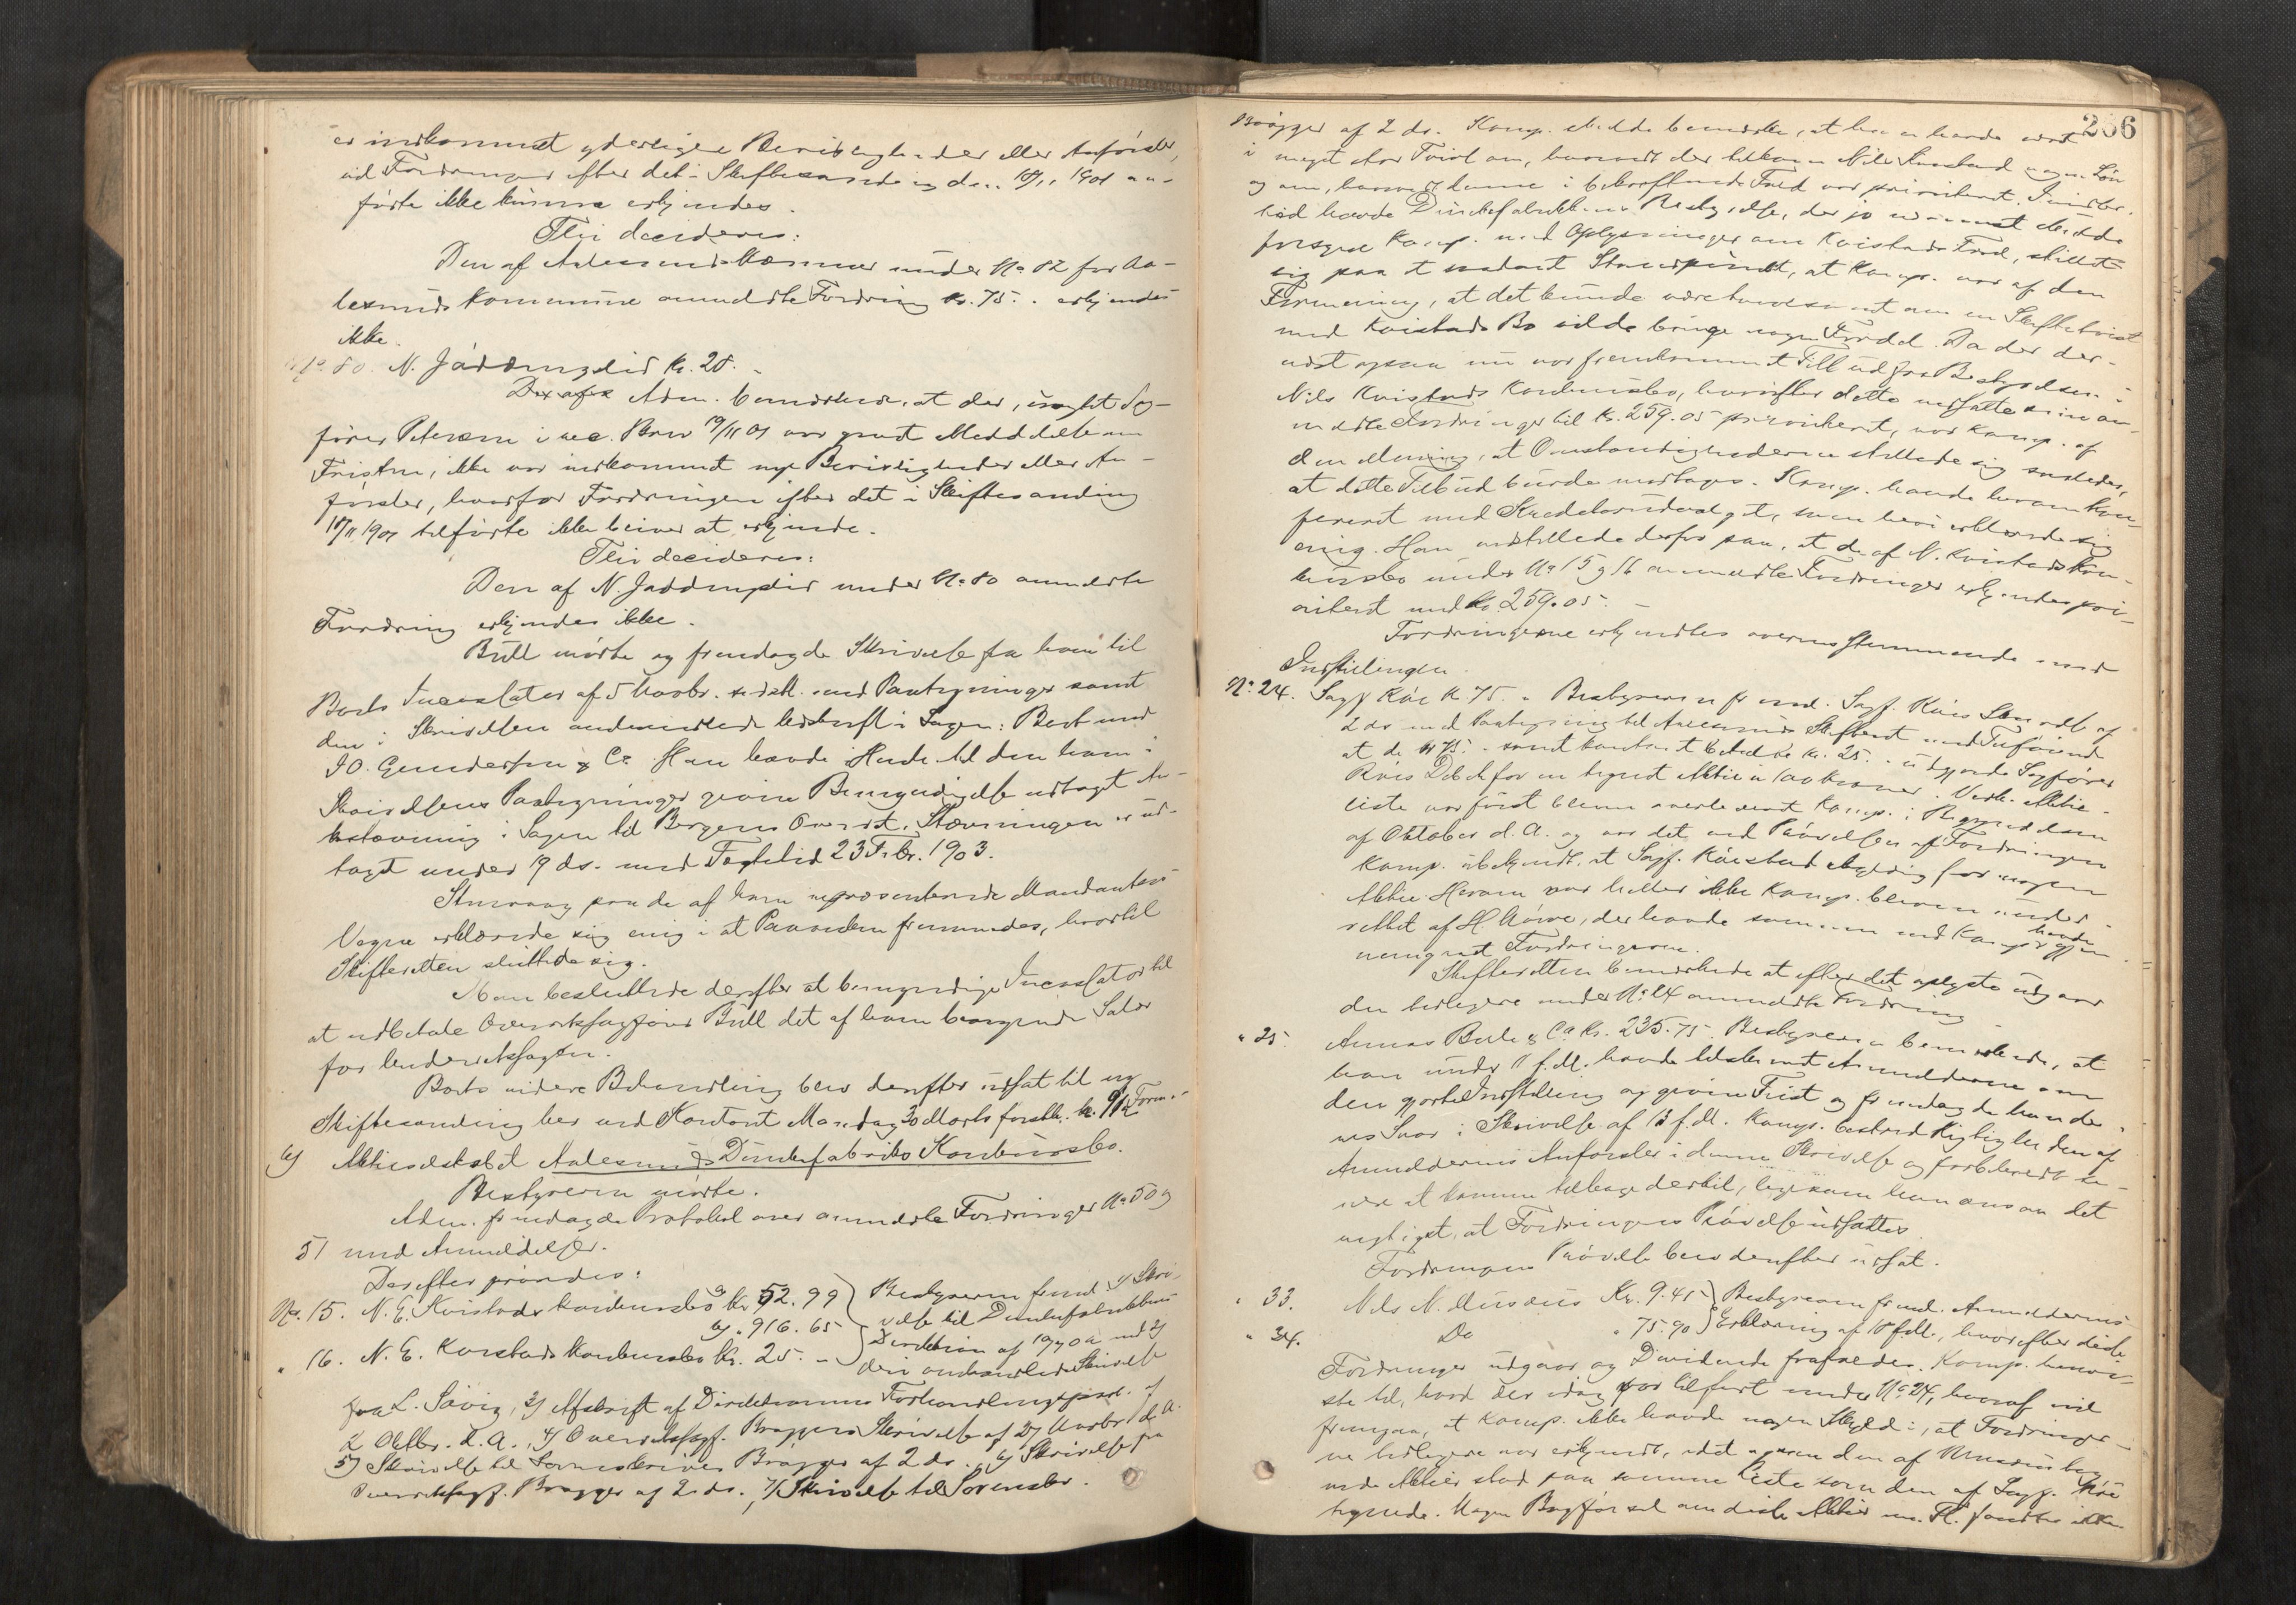 er indkommet yderligere Bevisligheder eller Anførsler,
ad Fordringer efter det i Skiftesamling den 18/11 1901 an-
førte ikke kunne erkjendes.
Thi decideres:
Den af Aalesunds Kæmner under No 82 for Aa-
lesunds Kommune anmeldte Fordring Kr. 75. - erkjendes
ikke.
No 80. N. Jaddungslid Kr. 28. -
Adm. bemærkede, at der, uagtet Sag-
fører Petersen i rec. Brev 19/11 01 var gjort Meddelelse om
Fristen, ikke var indkommet nye Bevisligheder eller An-
førsler, hvorfor Fordringen efter det i Skiftesamling
18/11 1901 tilførte ikke bliver at erkjende.
Thi decideres:
Den af N. Jaddungslid under No 80 anmeldte
Fordring erkjendes ikke.
Bull mødte og fremlagde Skrivelse fra ham til
Boets Incassator af 5 Novbr. sidstl. med Paategninger samt
den i Skrivelsen omhandlede Udskrift i Sagen: Boet mod
I. O. Gundersen & Co. Han havde i Henh. til den ham i
Skrivelsens Paategninger givne Bemyndigelse udtaget An-
kestævning i Sagen til Bergens Overret. Stævningen er ud-
taget under 19 ds. med Tægtetid 23 Febr. 1903.
paa de af ham repræsenterede Mandanters
Vegne erklærede sig enig i at Paaanken fremmedes, hvortil
Skifteretten sluttede sig.
Man besluttede derefter at bemyndige Incassator til
at udbetale Overretssagfører Bull det af ham beregnede Salær
for Underretssagen.
Boets videre Behandling blev derefter udsat til ny
Skiftesamling her ved Kontoret Mandag 30 Marts førstk. kl. 9½ Form.
b) Aktieselskabet Aalesunds Dunkefabriks Konkursbo.
Bestyreren mødte.
Adm. fremlagde Protokol over anmeldte Fordringer No 50 og
51 med Anmeldelser.
Derefter prøvedes:
No. 15. N. E. Kvistads Konkursbo a) Kr. 52. 99 Bestyreren freml. 1/ Skri-
b) " 916. 65 velse til Dunkefabrikkens
" 16. N. E. Kvistads Konkursbo Kr. 25. - Direktion af med 2/
den omhandlede Skrivelse
fra L. Søvig, 3/ Afskrift af Direktionens Forhandlingsprot. af
2 Oktbr. d. A., 4/ Overretssagf. Brøggers Skrivelse af 27 Novbr. d. A.
5/ Skrivelse til Brøgger af 2 ds., 6/ Skrivelse fra
Overretssagf. Brøgger af 2 ds., 7/ Skrivelse til Sorenskr.
206
Brøgger af 2 ds. Komp. skulde bemærke, at han havde været
i meget stor Tvivl om, hvorvidt der tilkom Nils Kvistad nogen Løn
og om, hvorvidt denne i bekræftende Fald var prioriteret. Imidler-
tid havde Dunkefabrikkens Bestyrelse, der jo nærmest skulde
forsyne Komp. med Oplysninger om Kvistads Forh., stillet
sig paa et saadant Standpunkt, at Komp. var af den
Formening, at det kunde være tvivlsomt om en Skiftetvist
med Kvistads Bo vilde bringe nogen Fordel. Da der der-
næst ogsaa nu var fremkommet Tilbud fra Bestyrelsen i
Nils Kvistads Konkursbo, hvorefter dette nedsatte sine an-
meldte Fordringer til Kr. 259. 05 prioriteret, var Komp. af
den Mening, at Omstændighederne stillede sig saaledes,
at dette Tilbud burde modtages. Komp. havde herom kon-
fereret med Kreditorudvalget, som heri erklærede sig
enig. Han indstillede derfor paa, at de af N. Kvistads Kon-
kursbo under No 15 og 16 anmeldte Fordringer erkjendes pri-
oriteret med Kr. 259. 05. -
Fordringerne erkjendtes overensstemmende med
Indstillingen.
No 24. Sagf. Kr. 75. - Bestyreren freml. Sagf. Skrivelse af
2 ds. med Paategning til Aalesunds Skifteret med Tilføiende
at de Kr. 75. - samt kontant betalte Kr. 25. - udgjorde Sagfører
Debet for en tegnet Aktie a 100 Kroner. Aktie-
liste var først bleven overleveret Komp. i Begyndelsen
af Oktober d. A. og var det ved Prøvelsen af Fordringen
Komp. ubekjendt, at Sagf. stod skyldig for nogen
Aktie. Herom var heller ikke Komp. bleven under-
rettet af H. der havde sammen med Komp. havde gjen-
nemgaaet Fordringerne.
Skifteretten bemærkede at efter det oplyste udgaar
den tidligere under No 24 anmeldte Fordring
" 25. & Co. Kr. 235. 75. Bestyreren bemærkede, at
han under f. M. havde tilskrevet Anmelderne om
den gjorte Indstilling og given Frist og fremlagde han de-
res Svar i Skrivelse af 13 f. M. Komp. bestred Rigtigheden af
Anmeldernes Anførsler i denne Skrivelse og forbeholdt se-
nere at komme tilbage dertil, ligesom han ansaa det
rigtigst, at Fordringens Prøvelse udsattes.
Fordringens Prøvelse blev derefter udsat.
" 33. Nils N. Kr. 9. 45 Bestyreren freml. Anmelderens
" 34. Do " 75. 90 Erklæring af 18 f. M., hvorefter disse
Fordringer udgaar og Dividende frafaldes. Komp. henvi-
ste til, hvad der idag var tilført under No 24, hvoraf vil
fremgaa, at Komp. ikke havde nogen Skyld i, at Fordringer-
ne tidligere var erkjendt, idet ogsaa den af
Aktier stod paa samme Liste som den af Sagf.
tegnede. Nogen Bogførsel om disse Aktier m. H. fandtes ikke